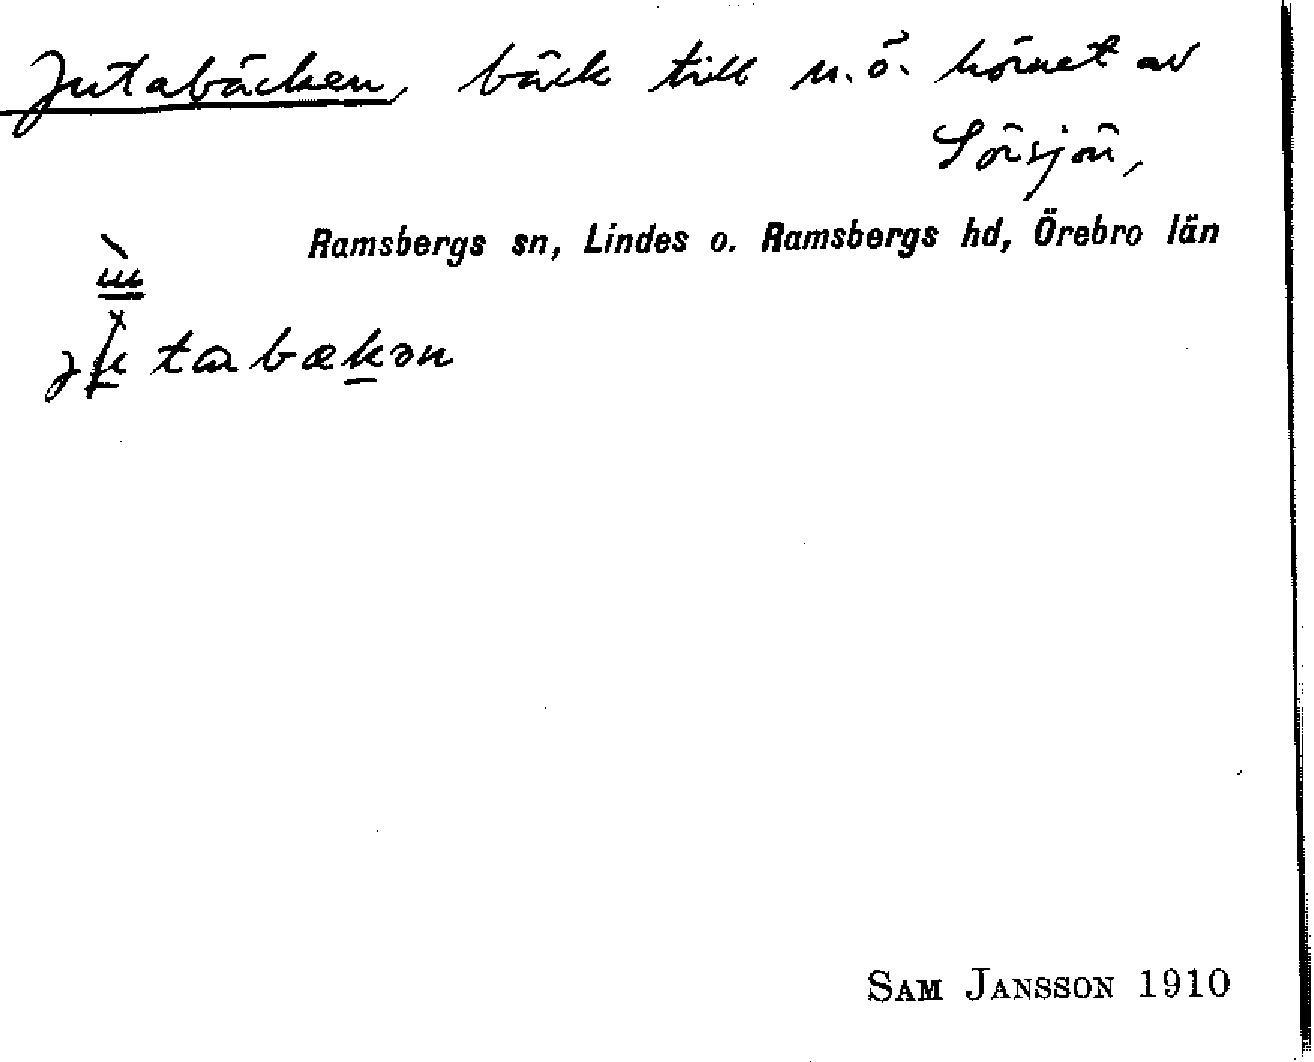 Jutabäcken, bäck till n.ö. hörnet av
Sörsjön,
Ramsbergs sn, Lindes o. Ramsbergs hd, Örebro län
tabækən
SAM JANSSON 1910